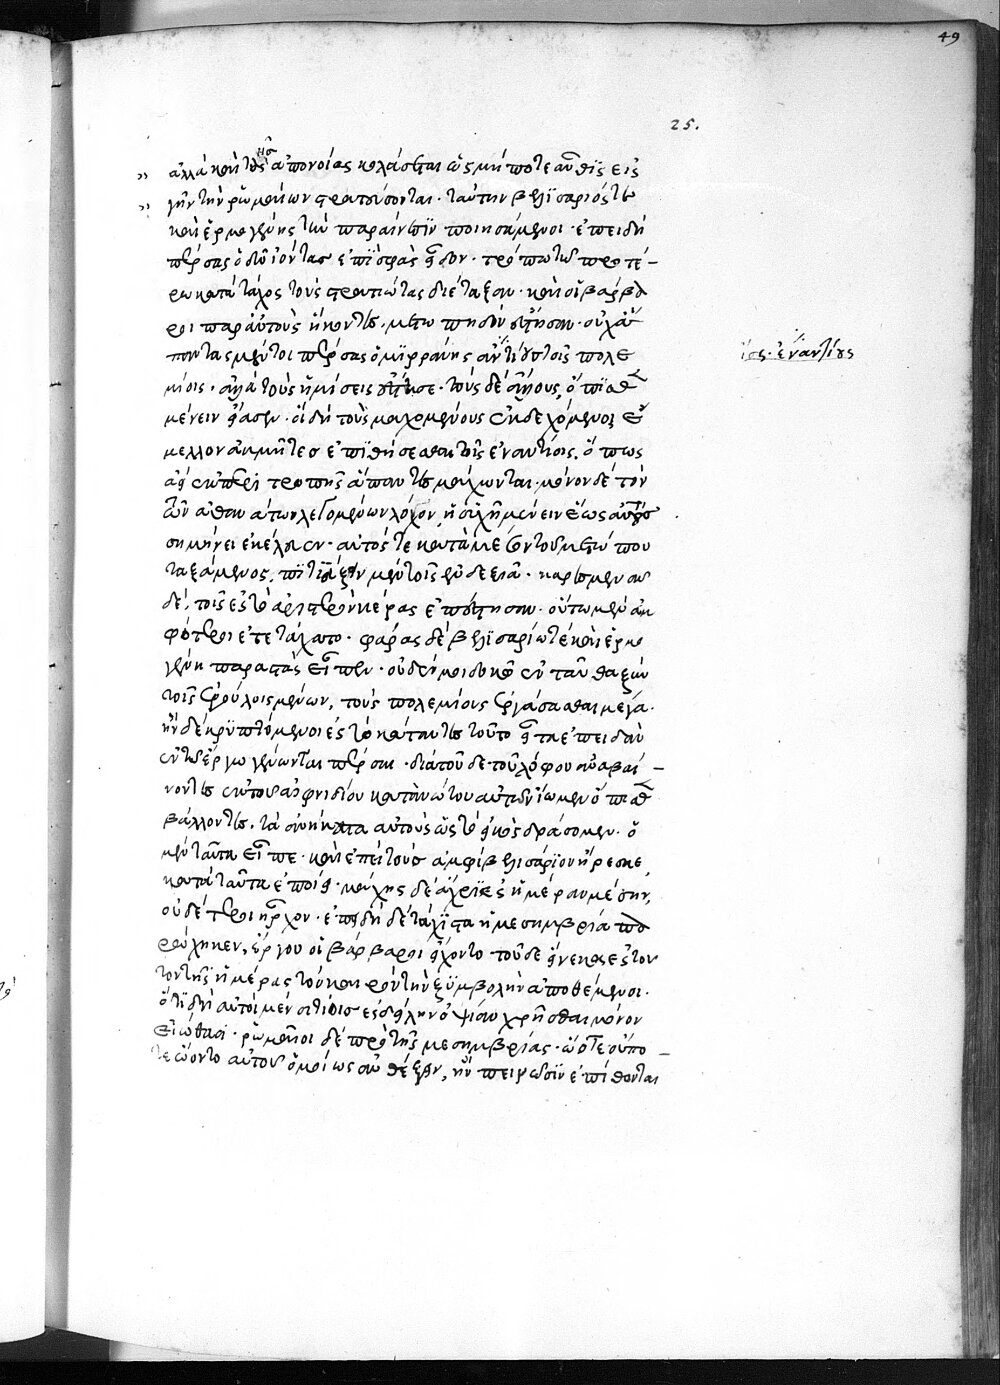 49
25.
ἀλλὰ καὶ τῆς ἀπονοίας κολάσεται ὡς μή ποτε αὖθις εἰς
γῆν τὴν ῥωμαίων στρατεύσονται. ταύτην βελισάριός τε
καὶ ἑρμογένης τὴν παραίνεσιν ποιησάμενοι. ἐπειδὴ
πέρσας ὁδῷ ἰόντας ἐπὶ σφᾶς εἶδον. τρόπῳ τῷ προτέ-
ρῳ κατὰ τάχος τοὺς στρατιώτας διέταξαν. καὶ οἱ βάρβα
ροι παρ' αὐτοὺς ἥκοντες, μετωπηδὸν ἔστησαν. οὐχ ἅ
παντας μέντοι πέρσας ὁ μιρράνης ἀντίους τοῖς πολε
μίοις. ἀλλὰ τοὺς ἡμίσεις ἔστησε. τοὺς δὲ ἄλλους, ὄπισθεν
μένειν εἴασεν. οἳ δὴ τοὺς μαχομένους ἐκδεχόμενοι ἔ
μελλον ἀκμῆτες ἐπιθήσεσθαι τοῖς ἐναντίοις. ὅπως
ἀεὶ ἐκ περιτροπῆς ἅπαντες μάχωνται. μόνον δὲ τὸν
τῶν ἀθανάτων λεγομένων λόχον, ἡσυχῇ μένειν ἕως αὐτὸς
σημήνει ἐκέλευεν. αὐτός τε κατὰ μέσον τοῦ μετώπου
ταξάμενος, πιτυάξην μὲν τοῖς ἐν δεξιᾷ. βαρεσμανᾶν
δὲ, τοῖς ἐς τὸ ἀριστερὸν κέρας ἐπέστησαν. οὕτω μὲν ἀμ
φότεροι ἐτετάχατο. φάρας δὲ βελισαρίῳ τε καὶ ἑρμο
γένῃ παραστὰς εἶπεν. οὐδέν μοι δοκῶ ἐνταῦθα ξὺν
τοῖς ἐρούλοις μένων, τοὺς πολεμίους ἐργάσασθαι μέγα.
ἢν δὲ κρυπτόμενοι ἐς τὸ κάταντες τοῦτο εἶτα ἐπειδὰν
ἐν τῷ ἔργῳ γένωνται πέρσαι. διὰ τοῦδε τοῦ λόφου ἀναβαί-
νοντες ἐκ τοῦ αἰφνιδίου κατὰ νώτου αὐτῶν ἴωμεν ὄπισθεν
βάλλοντες, τὰ ἀνήκεστα αὐτοὺς ὡς τὸ εἰκὸς δράσομεν. ὁ
μὲν ταῦτα εἶπε. καὶ ἐπεὶ τοὺς ἀμφὶ βελισάριον ἤρεσκε,
κατὰ ταῦτα ἐποίει. μάχης δὲ ἄχρι ἐς ἡμέραν μέσην,
οὐδέτεροι ἦρχον. ἐπειδὴ δὲ τάχιστα ἡ μεσημβρία πα
ρῴχηκεν, ἔργου οἱ βάρβαροι εἴχοντο τοῦδε εἵνεκα ἐς τοῦ
τον τῆς ἡμέρας τὸν καιρὸν τὴν ξυμβολὴν ἀποθέμενοι.
ὅτι δὴ αὐτοὶ μὲν σιτίοις ἐς δείλην ὀψίαν χρῆσθαι μόνον
εἰώθασι. ῥωμαῖοι δὲ πρὸ τῆς μεσημβρίας. ὥστε οὔπο-
τε ᾤοντο αὐτοὺς ὁμοίως ἀνθέξειν, ἢν πεινῶσιν ἐπίθωνται
ἴσς. ἐναντίους